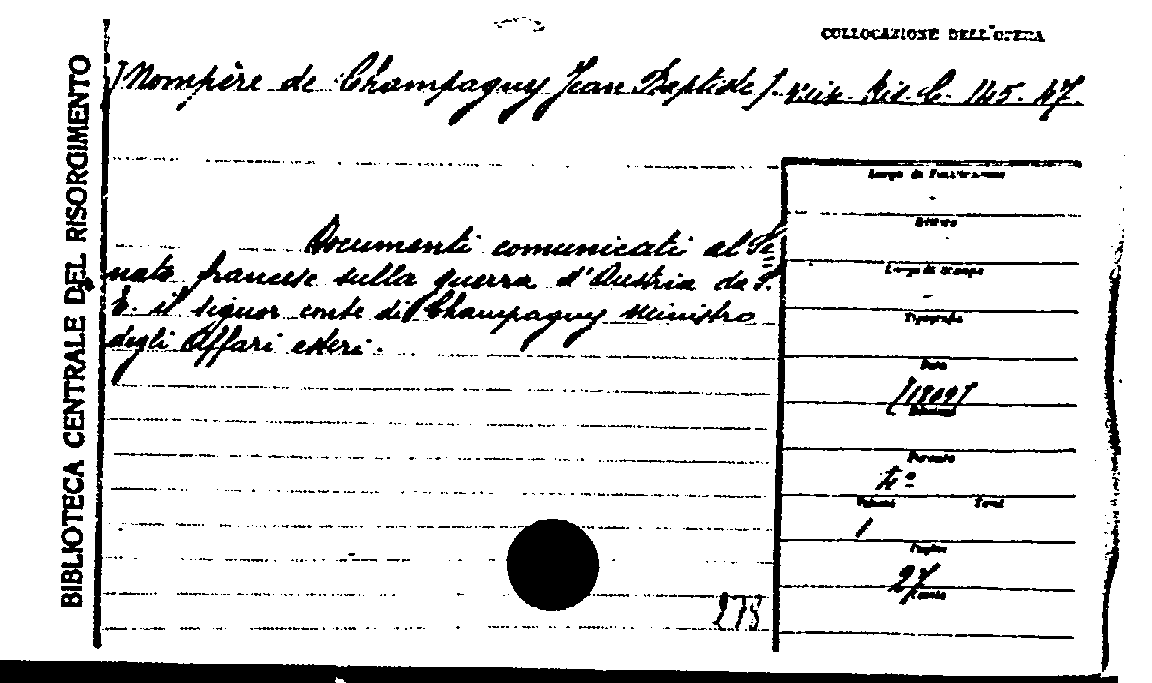 COLLOCAZIONE DELL'OPERA
[Nompère de Champagny Jean Baptiste]. Ris. C. 145. 47.
BIBLIOTECA CENTRALE DEL RISORGIMENTO
Documenti comunicati al Se-
nato francese sulla guerra d'Austria da S.
E. il signor conte di Champagny ministro
degli Affari esteri.
278
Luogo di Pubblicazione
-
Editore
-
Luogo di stampa
-
Tipografia
Data
[1809]
Edizione
Formato
4º
Volumi Tomi
1
Pagine
27